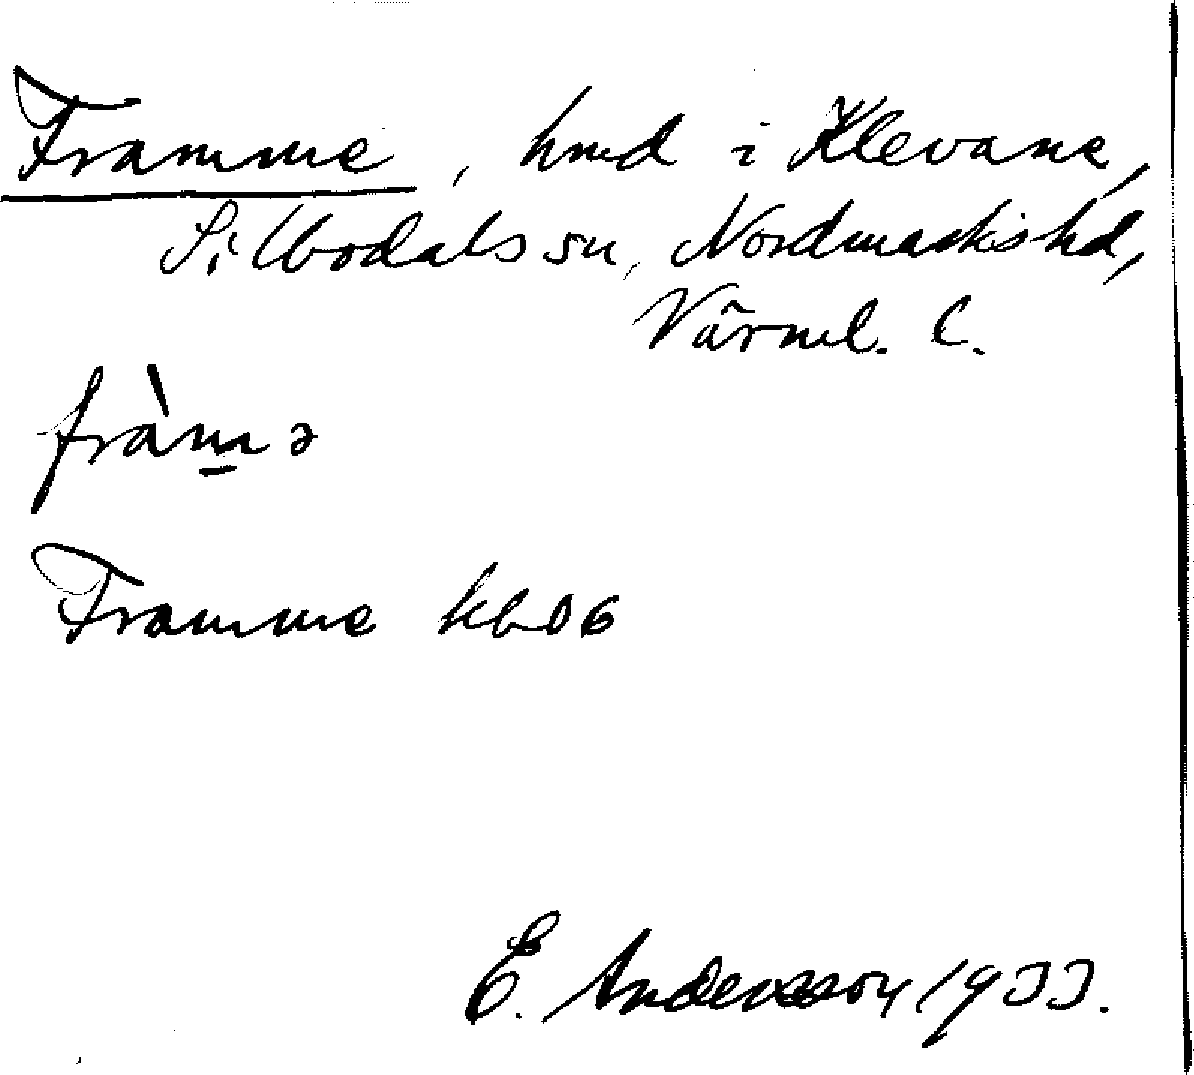 Framme, hmd i Klevane,
Silbodals sn, Nordmarks hd,
Värml. l.
fràm̲ə
Framme kb06
E. Andersson 1933.